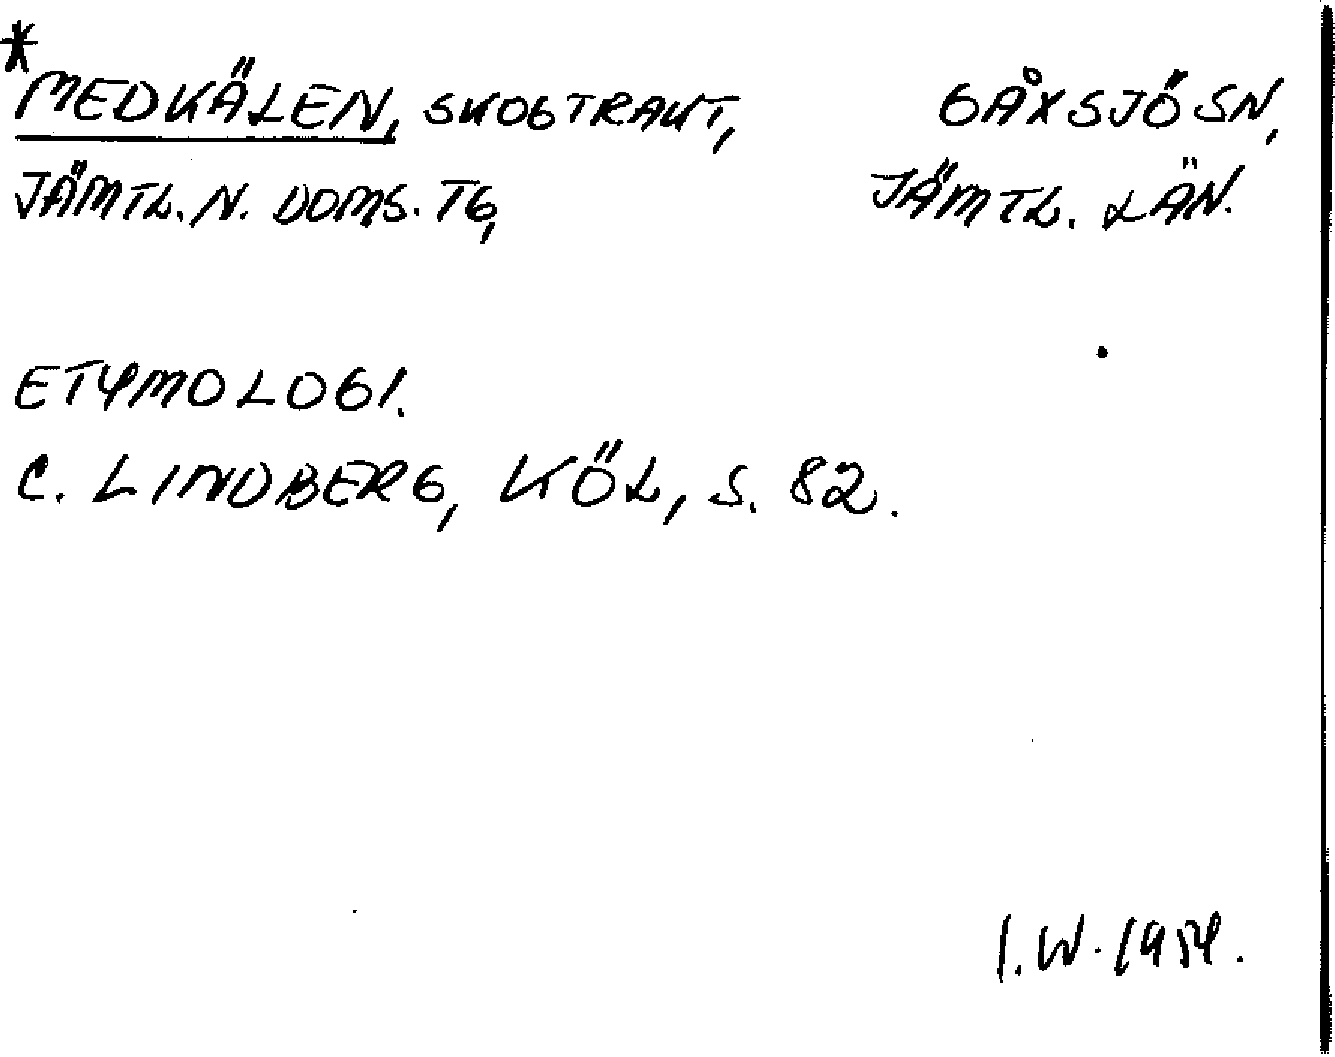 *
MEDKÄLEN, SKOGTRAKT, GÅXSJÖ SN,
JÄMTL. N. DOMS. TG, JÄMTL. LÄN.
ETYMOLOGI.
C. LINDBERG, KÖL, S. 82.
I. W. 1954.